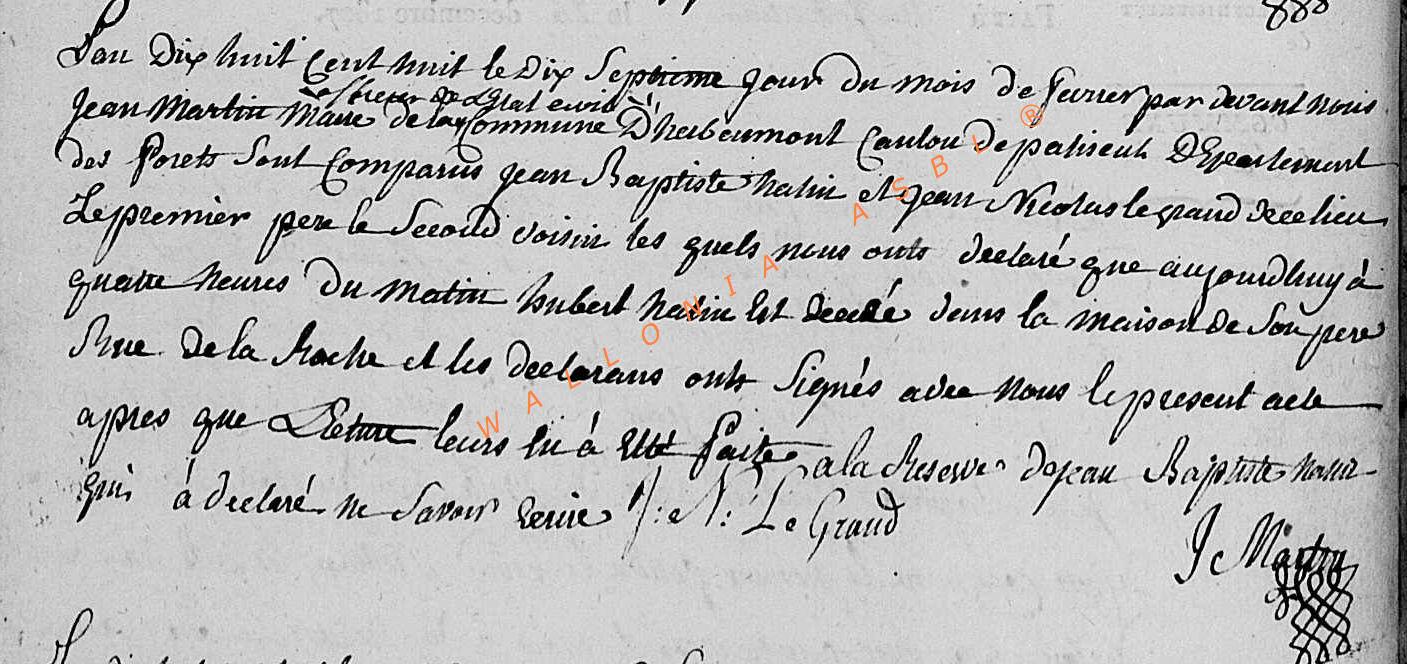 888
L'an Dix huit Cent huit le Dix Septieme jour du mois de fevrier par devant nous
officier de L'Etat civil
Jean Martin Maire de la Commune D'herbeumont Canton de paliseul Departement
des Forets Sont Comparus Jean Baptiste et Jean Nicolas le grand de ce lieu
Le premier pere le Second voisin les quels nous onts declaré que aujourdhuy à
quatre heures du matin hubert Est decedé dans la maison de Son pere
Rue de la Roche et les declarans onts Signés avec Nous le present acte
apres que Lecture leurs en à Eté faite a la Reserve de jean Baptiste
qui à declaré ne Savoir Ecrire J: N: Le Grand
J Martin
WALLONIA ASBL ®